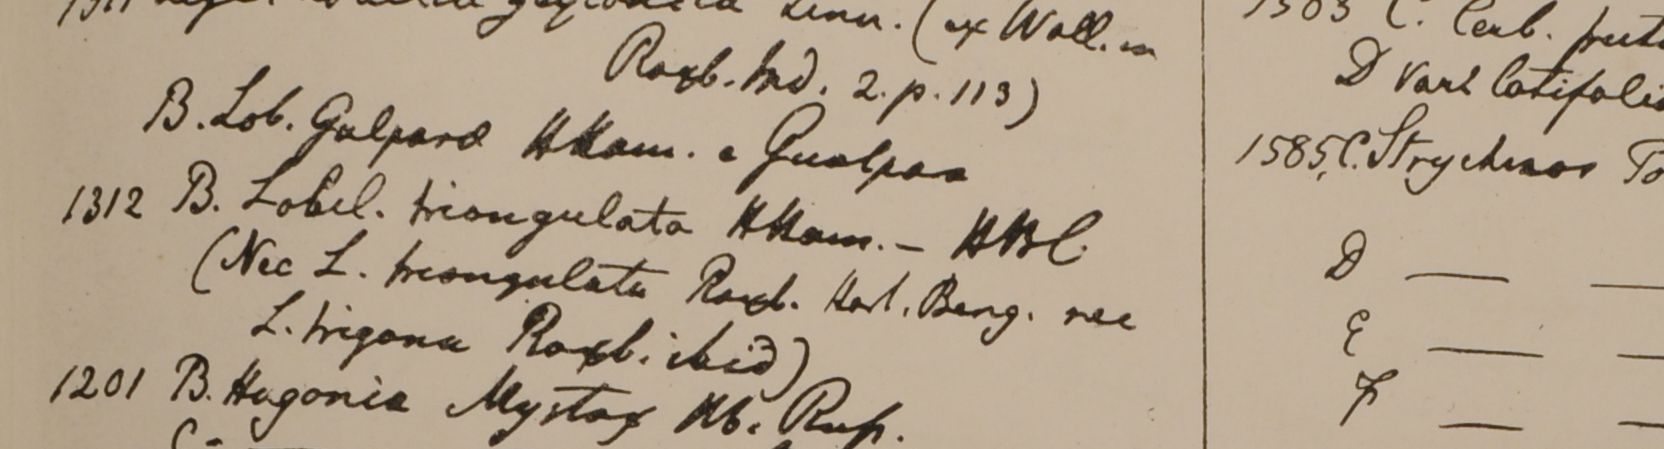 Linn. (ex Wall. in
Roxb. Ind. 2. p. 113)
B. Lob. Goalpara HHam. e Gualpara
1312 B. Lobel. triangulata HHam. - HBC
(Nec L. triangulata Roxb. Hort. Beng. nec
L. trigona Roxb. ibid)
1201 B. Hugonia Mystax Hb. Rup.
1583 C. Cerb. fruti
D var? latifolia
1585, C. Strychnos Po
D — —
E — —
F — —